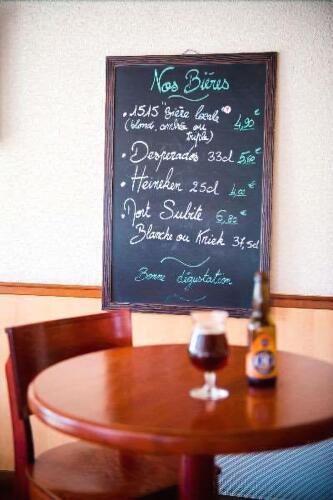 Nos Bières
• 1515 "Bière locale" 4,90 €
(blond, ambrée ou
triple)
• Desperados 33cl 5,60 €
• Heineken 25cl 4,00 €
• Mort Subite 6,80 €
Blanche ou Kriek 37,5cl
Bonne dégustation